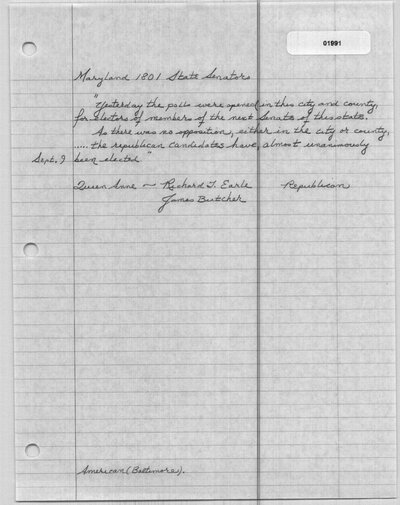 01991
Maryland 1801 State Senators
"Yesterday the polls were opened in this city and county,
for electors of members of the next Senate of this state.
As there was no opposition, either in the city or county,
..... the republican candidates have, almost unanimously
Sept. 9 been elected."
Queen Anne ~ Richard T. Earle Republican
James Butcher
American (Baltimore).